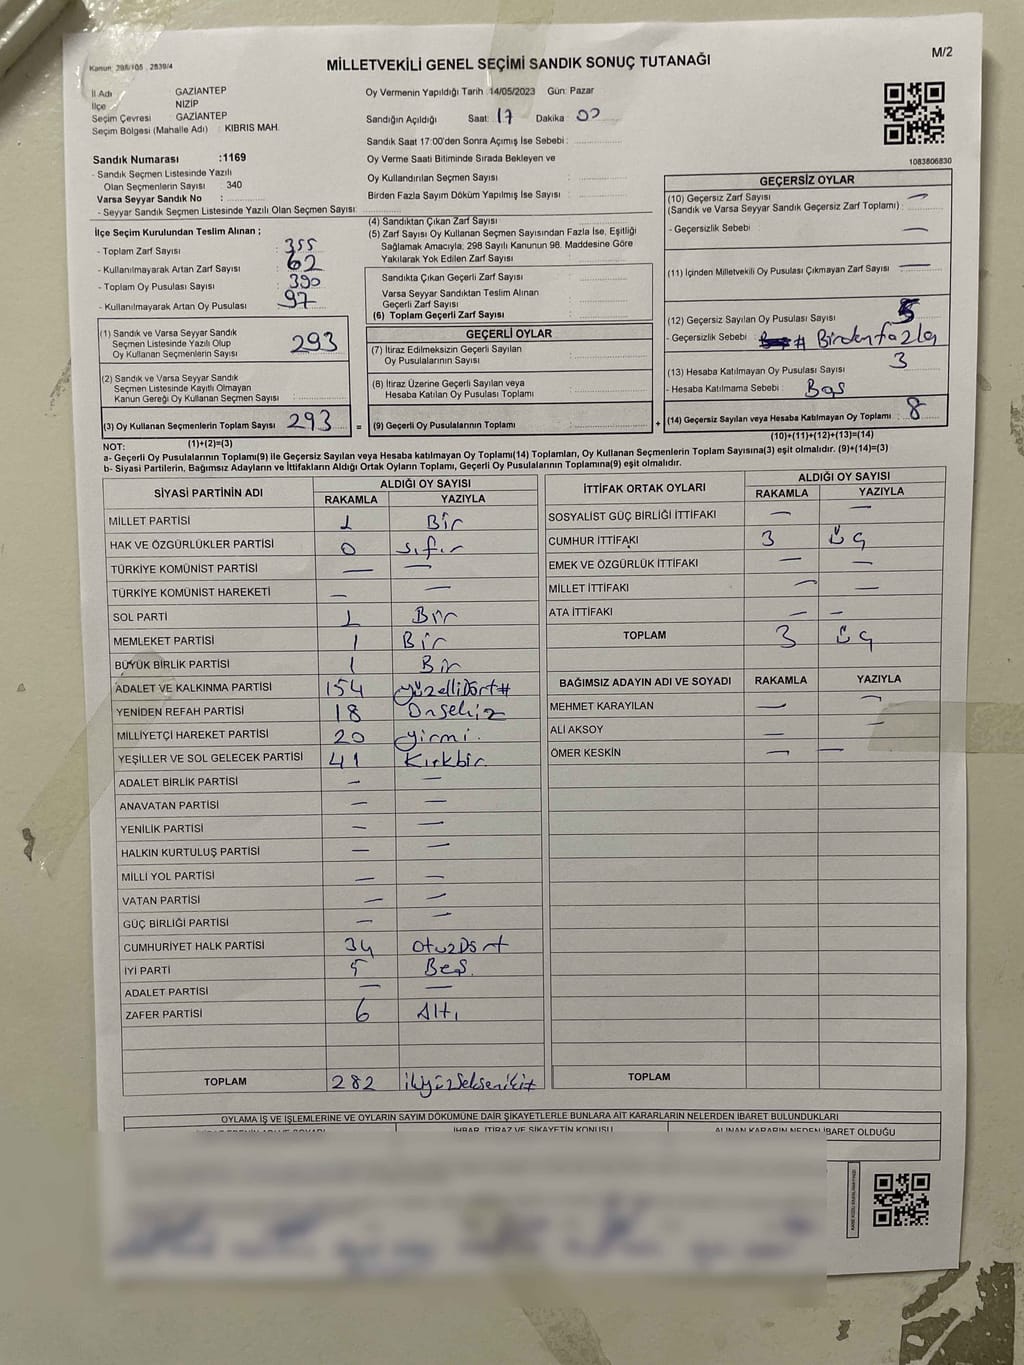 Kanun: 298/105 , 2839/4
MİLLETVEKİLİ GENEL SEÇİMİ SANDIK SONUÇ TUTANAĞI
M/2
İl Adı : GAZİANTEP
İlçe : NİZİP
Seçim Çevresi : GAZİANTEP
Seçim Bölgesi (Mahalle Adı) : KIBRIS MAH.
Sandık Numarası :1169
- Sandık Seçmen Listesinde Yazılı
Olan Seçmenlerin Sayısı : 340
Varsa Seyyar Sandık No :
- Seyyar Sandık Seçmen Listesinde Yazılı Olan Seçmen Sayısı:
Oy Vermenin Yapıldığı Tarih :14/05/2023 Gün: Pazar
Sandığın Açıldığı Saat: 17 Dakika : 00
Sandık Saat 17:00'den Sonra Açımış İse Sebebi :
Oy Verme Saati Bitiminde Sırada Bekleyen ve
Oy Kullandırılan Seçmen Sayısı :
Birden Fazla Sayım Döküm Yapılmış İse Sayısı :
1083806830
İlçe Seçim Kurulundan Teslim Alınan ;
- Toplam Zarf Sayısı : 355
- Kullanılmayarak Artan Zarf Sayısı : 62
- Toplam Oy Pusulası Sayısı : 390
- Kullanılmayarak Artan Oy Pusulası : 97
(1) Sandık ve Varsa Seyyar Sandık
Seçmen Listesinde Yazılı Olup
Oy Kullanan Seçmenlerin Sayısı : 293
(2) Sandık ve Varsa Seyyar Sandık
Seçmen Listesinde Kayıtlı Olmayan
Kanun Gereği Oy Kullanan Seçmen Sayısı :
(3) Oy Kullanan Seçmenlerin Toplam Sayısı : 293
(1)+(2)=(3)
(4) Sandıktan Çıkan Zarf Sayısı :
(5) Zarf Sayısı Oy Kullanan Seçmen Sayısından Fazla İse, Eşitliği
Sağlamak Amacıyla, 298 Sayılı Kanunun 98. Maddesine Göre
Yakılarak Yok Edilen Zarf Sayısı :
Sandıkta Çıkan Geçerli Zarf Sayısı :
Varsa Seyyar Sandıktan Teslim Alınan
Geçerli Zarf Sayısı :
(6) Toplam Geçerli Zarf Sayısı :
GEÇERLİ OYLAR
(7) İtiraz Edilmeksizin Geçerli Sayılan
Oy Pusulalarının Sayısı :
(8) İtiraz Üzerine Geçerli Sayılan veya
Hesaba Katılan Oy Pusulaları Toplamı :
= (9) Geçerli Oy Pusulalarının Toplamı : +
GEÇERSİZ OYLAR
(10) Geçersiz Zarf Sayısı —
(Sandık ve Varsa Seyyar Sandık Geçersiz Zarf Toplamı) :
- Geçersizlik Sebebi : —
(11) İçinden Milletvekili Oy Pusulası Çıkmayan Zarf Sayısı : —
(12) Geçersiz Sayılan Oy Pusulası Sayısı : 5
- Geçersizlik Sebebi : # Birden fazla
(13) Hesaba Katılmayan Oy Pusulası Sayısı : 3
- Hesaba Katılmama Sebebi : Boş
(14) Geçersiz Sayılan veya Hesaba Katılmayan Oy Toplamı : 8
(10)+(11)+(12)+(13)=(14)
NOT:
a- Geçerli Oy Pusulalarının Toplamı(9) ile Geçersiz Sayılan veya Hesaba katılmayan Oy Toplamı(14) Toplamları, Oy Kullanan Seçmenlerin Toplam Sayısına(3) eşit olmalıdır. (9)+(14)=(3)
b- Siyasi Partilerin, Bağımsız Adayların ve İttifakların Aldığı Ortak Oyların Toplamı, Geçerli Oy Pusulalarının Toplamına(9) eşit olmalıdır.
SİYASİ PARTİNİN ADI
ALDIĞI OY SAYISI
RAKAMLA YAZIYLA
MİLLET PARTİSİ 1 Bir
HAK VE ÖZGÜRLÜKLER PARTİSİ 0 sıfır
TÜRKİYE KOMÜNİST PARTİSİ — —
TÜRKİYE KOMÜNİST HAREKETİ — —
SOL PARTİ 1 Bir
MEMLEKET PARTİSİ 1 Bir
BÜYÜK BİRLİK PARTİSİ 1 Bir
ADALET VE KALKINMA PARTİSİ 154 yüzelliDört#
YENİDEN REFAH PARTİSİ 18 Onsekiz
MİLLİYETÇİ HAREKET PARTİSİ 20 yirmi.
YEŞİLLER VE SOL GELECEK PARTİSİ 41 Kırkbir
ADALET BİRLİK PARTİSİ — —
ANAVATAN PARTİSİ — —
YENİLİK PARTİSİ — —
HALKIN KURTULUŞ PARTİSİ — —
MİLLİ YOL PARTİSİ — —
VATAN PARTİSİ — —
GÜÇ BİRLİĞİ PARTİSİ — —
CUMHURİYET HALK PARTİSİ 34 otuzDört
İYİ PARTİ 5 Beş.
ADALET PARTİSİ — —
ZAFER PARTİSİ 6 Altı
TOPLAM 282 ikiyüzSekseniki#
İTTİFAK ORTAK OYLARI
ALDIĞI OY SAYISI
RAKAMLA YAZIYLA
SOSYALİST GÜÇ BİRLİĞİ İTTİFAKI — —
CUMHUR İTTİFAKI 3 üç
EMEK VE ÖZGÜRLÜK İTTİFAKI — —
MİLLET İTTİFAKI — —
ATA İTTİFAKI — —
TOPLAM 3 üç
BAĞIMSIZ ADAYIN ADI VE SOYADI RAKAMLA YAZIYLA
MEHMET KARAYILAN — —
ALİ AKSOY — —
ÖMER KESKİN — —
TOPLAM
OYLAMA İŞ VE İŞLEMLERİNE VE OYLARIN SAYIM DÖKÜMÜNE DAİR ŞİKAYETLERLE BUNLARA AİT KARARLARIN NELERDEN İBARET BULUNDUKLARI
İHBAR, İTİRAZ VE ŞİKAYETİN KONUSU ALINAN KARARIN NEDEN İBARET OLDUĞU